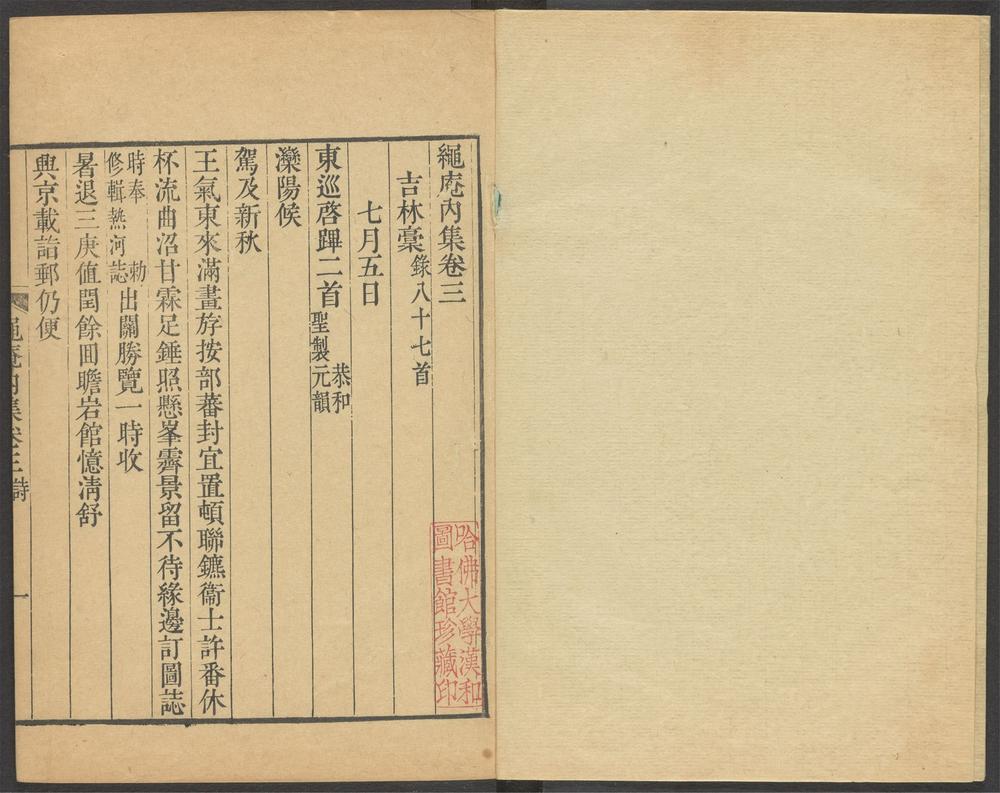 繩庵內集卷三
吉林稾錄八十七首
七月五日
東巡啓蹕二首恭和聖製元韻
灤陽候
駕及新秋
王氣東來滿畫斿按部蕃封宜置頓聯鑣衞士許番休
杯流曲沼甘霖足錘照懸峯霽景留不待緣邊訂圖誌
時奉勅修輯熱河誌出關勝覽一時收
暑退三庚值閏餘回瞻岩館憶淸舒
興京載詣郵仍便
繩庵內集卷三 詩 一
哈佛大學漢和
圖書館珍藏印